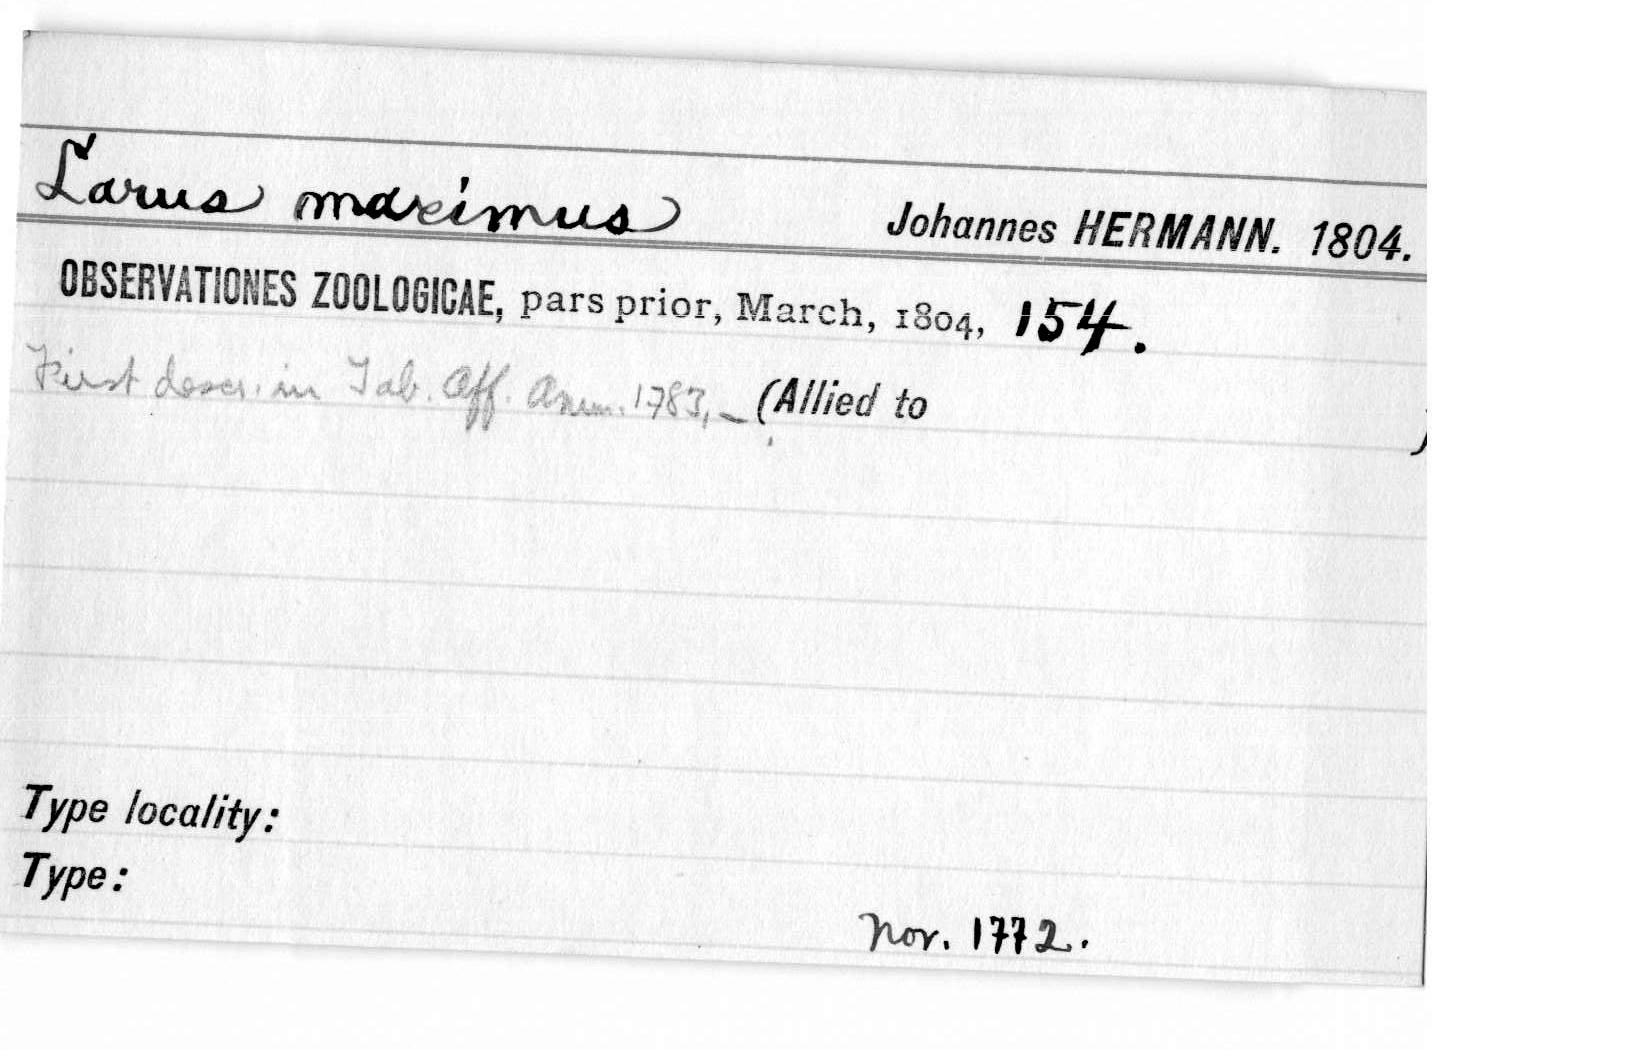 Larus maximus Johannes HERMANN. 1804.
OBSERVATIONES ZOOLOGICAE, pars prior, March, 1804, 154.
First descr. in Tab. Aff. Anim. 1783, – (Allied to )
Type locality:
Type:
Nov. 1772.